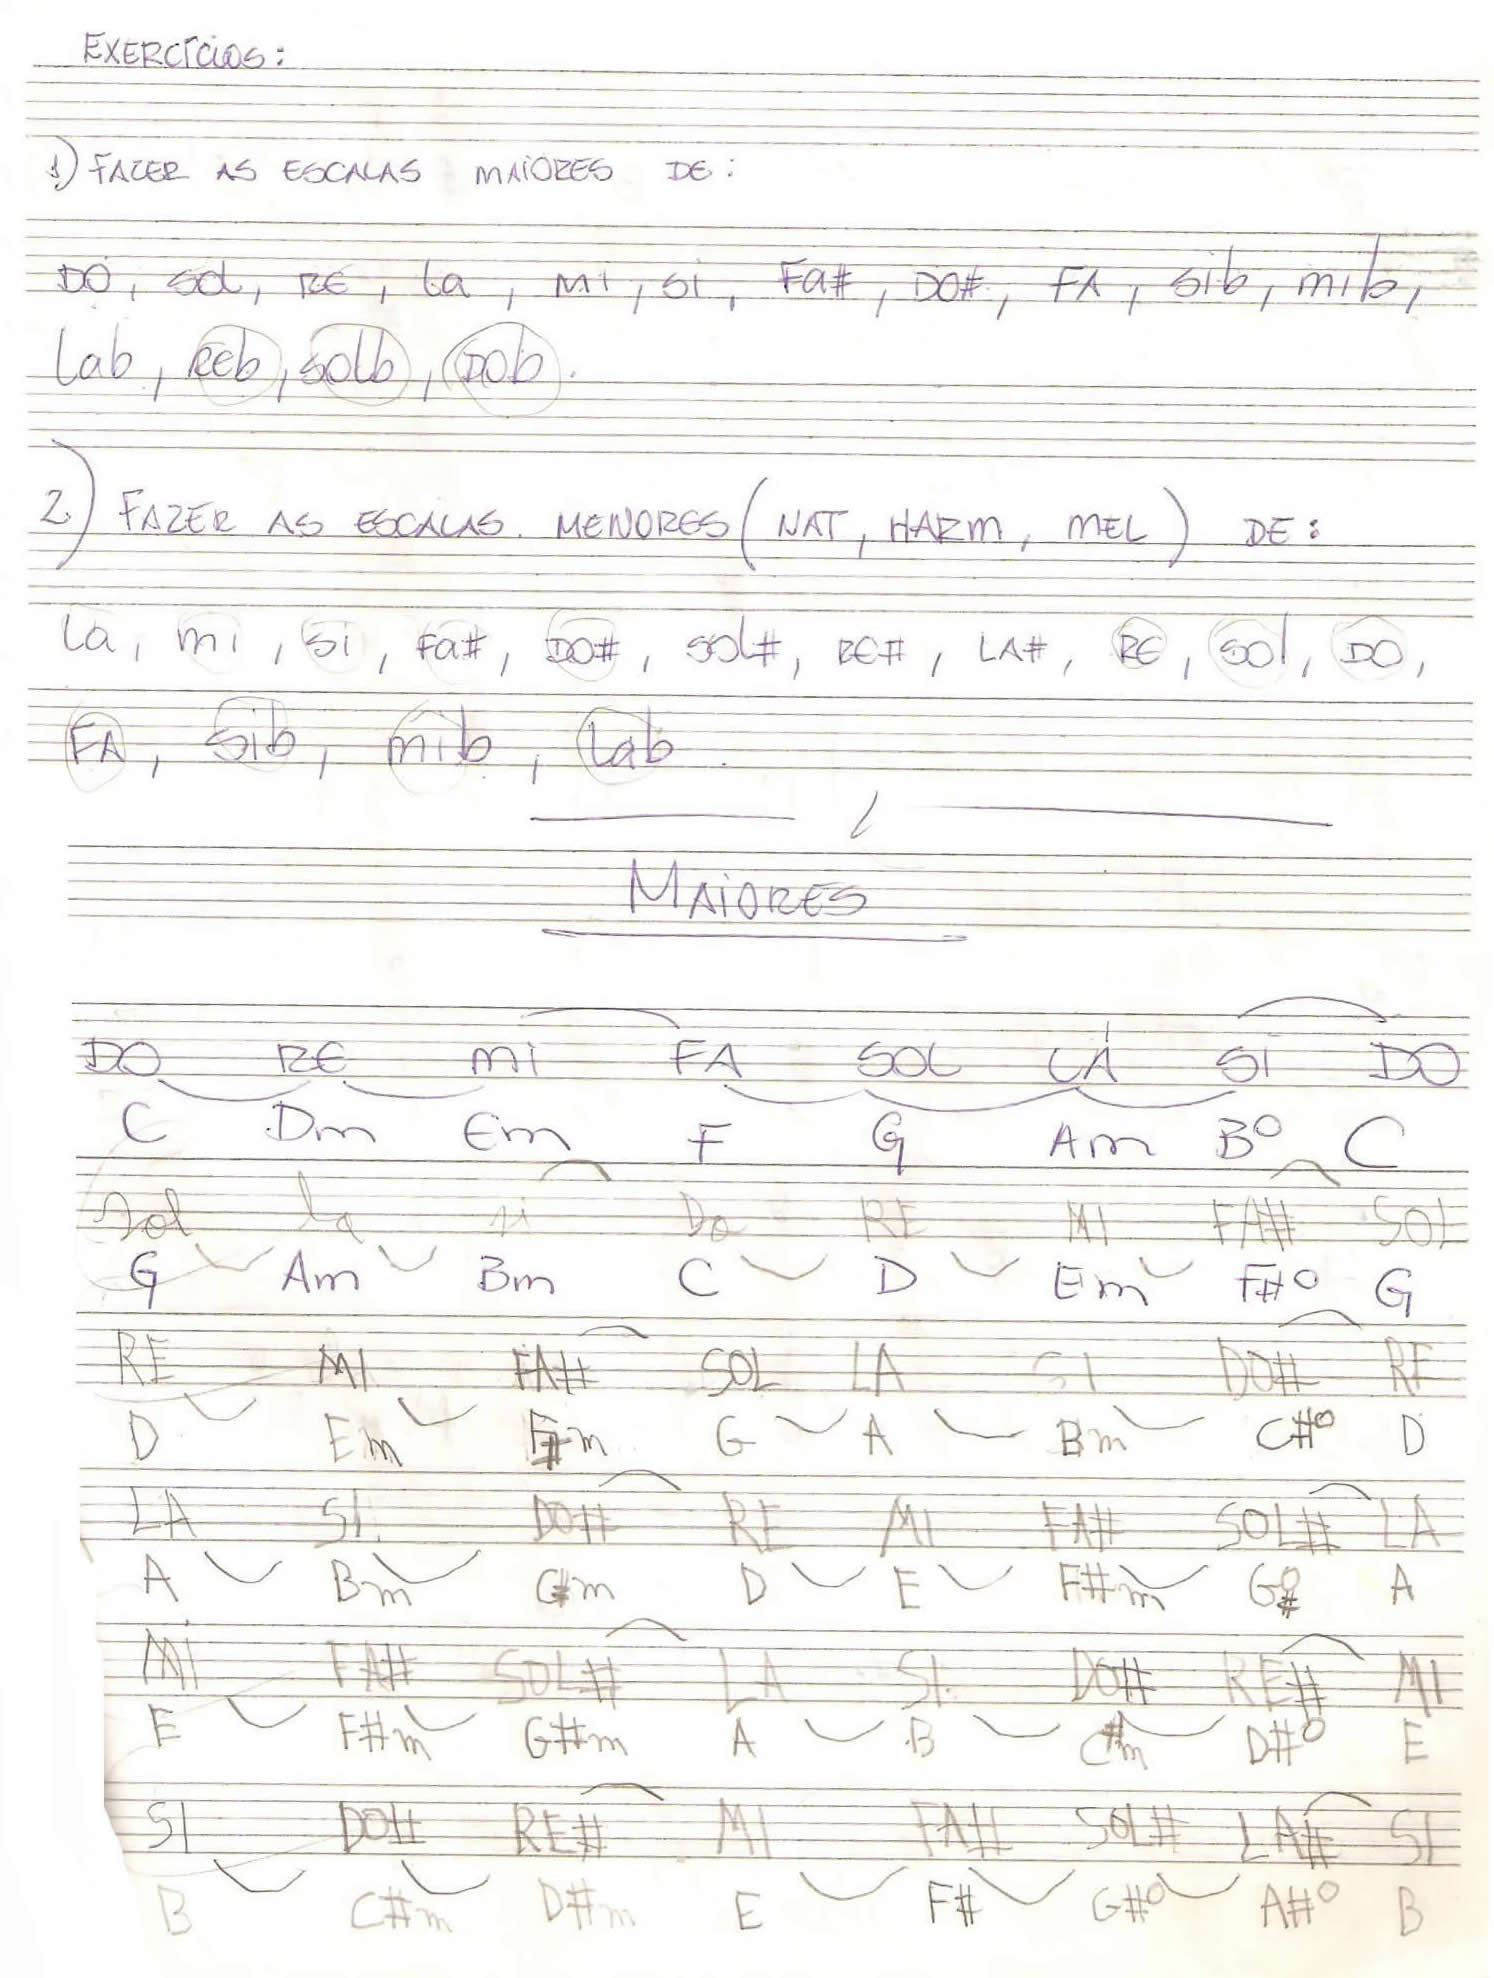 EXERCÍCIOS:
1) FAZER AS ESCALAS MAIORES DE:
DÓ, sol, RE, la, MI, si, Fa#, DO#, FA, sib, mib,
Lab, REb, SOLb, DOb.
2) FAZER AS ESCALAS MENORES (NAT, HARM, MEL) DE:
La, mi, si, Fa#, DO#, sol#, RE#, LA#, RE, sol, DO,
FA, Sib, mib, Lab.
MAIORES
DO RE MI FA SOL LÁ SI DO
C Dm Em F G Am Bº C
Sol la si Do RE MI FA# SOL
G Am Bm C D Em F#º G
RE MI FA# SOL LA SI DO# RE
D Em F#m G A Bm C#º D
LA SI DO# RE MI FA# SOL# LA
A Bm C#m D E F#m G#º A
MI FA# SOL# LA SI DO# RE# MI
E F#m G#m A B C#m D#º E
SI DO# RE# MI FA# SOL# LA# SI
B C#m D#m E F# G#º A#º B